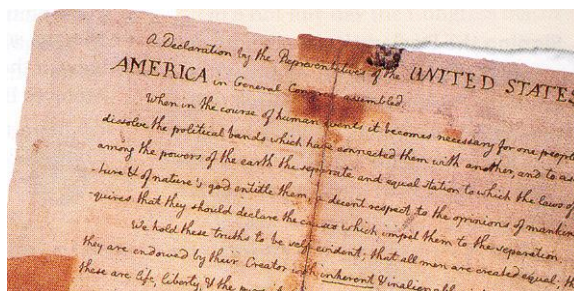 A Declaration by the Representatives of the UNITED STATES
AMERICA in General Congress assembled.
When in the course of human events it becomes necessary for one people
dissolve the political bands which have connected them with another, and to
among the powers of the earth the separate and equal station to which the laws of
ture & of nature's god entitle them, a decent respect to the opinions of
-quires that they should declare the causes which impel them to the separation.
We hold these truths to be self evident; that all men are created equal;
they are endowed by their Creator with inherent & inalienable
these are life, liberty, & the